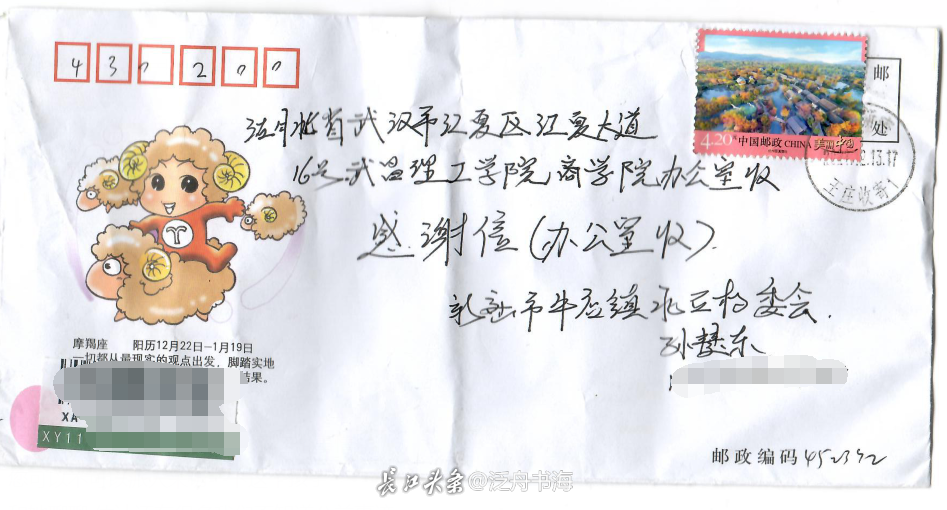 430200
湖北省武汉市江夏区江夏大道
16号武昌理工学院商学院办公室收
感谢信(办公室收).
新密市牛店镇 村委会.
孙慧东
4.20元 中国邮政 CHINA 美丽中国
邮
处
.13.17
王庄收寄1
摩羯座 阳历12月22日—1月19日
一切都从最现实的观点出发,脚踏实地
结果。
XA
XY11
邮政编码 452392
长江头条 @泛舟书海